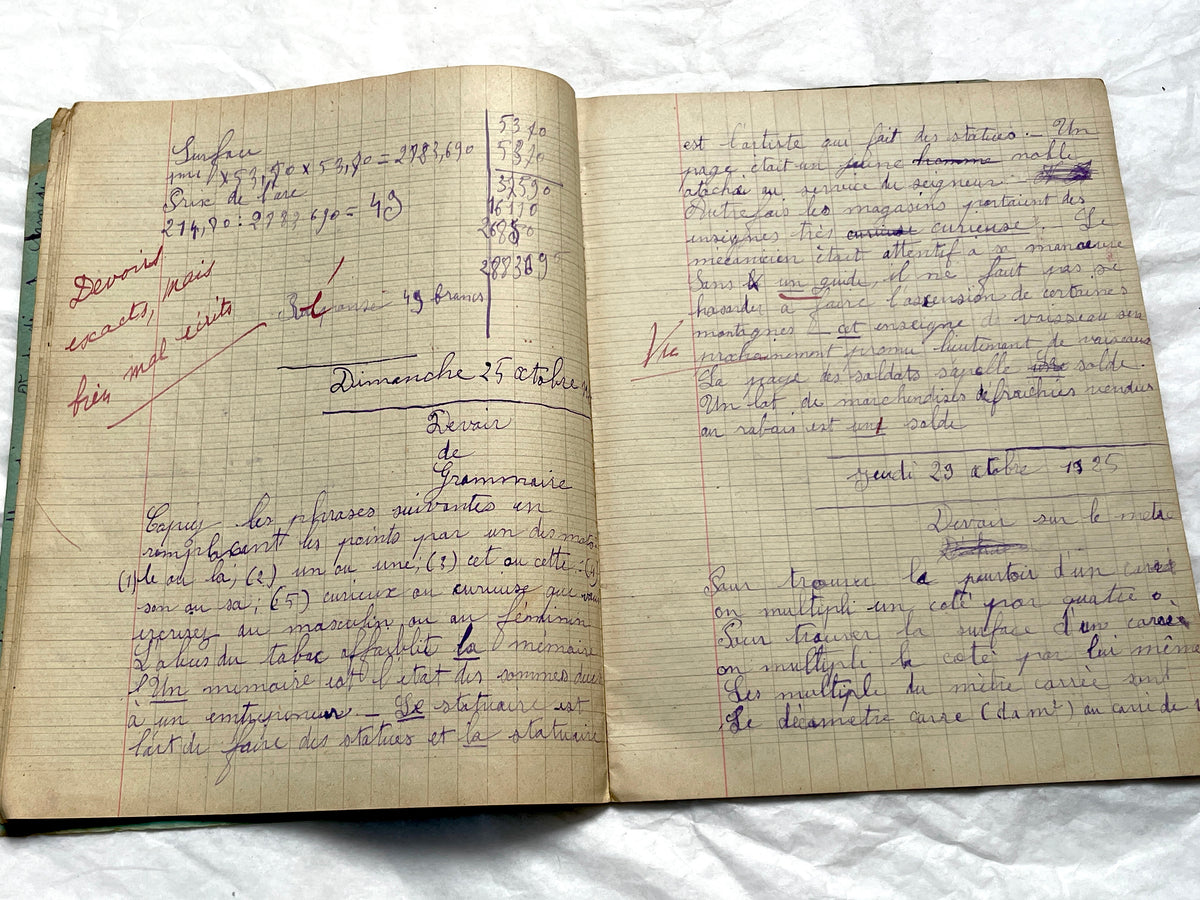 Surface
1 × 53,70 × 53,70 = 2883,690
Prix de l'are
214,70 : 2883,690 = 49
Réponse 49 francs
5370
5370
37590
16110
26850
288369
Devoirs
exacts, mais
bien mal écrits
Dimanche 25 octobre
Devoir
de
Grammaire
Copiez les phrases suivantes en
remplacent les points par un des mots
(1) le ou la; (2) un ou une; (3) cet ou cette;
son ou sa; (5) curieux ou curieuse que vous
écrirez au masculin ou au féminin
L'abus du tabac affaiblit la mémoire
Un memoire est l'état des sommes dues
à un entrepreneur. — Le statuaire est
l'art de faire des statues et la statuaire
est l'artiste qui fait des statues. — Un
page était un jeune homme noble
ataché au service du seigneur.
Autrefois les magasins portaient des
enseignes très curieuse curieuse. — Le
mécanicien était attentif à sa manœuvre
Sans un guide, il ne faut pas se
hasarder à faire l'ascension de certaines
montagnes — cet enseigne de vaisseau sera
prochainement promu lieutenant de vaisseau
La paye des soldats s'apelle solde.
Un lot de marchendises défraîchies vendues
au rabais est un solde
Vu
Jeudi 29 octobre 1925
Devoir sur le mètre
Pour trouver la pourtoir d'un carré
on multipli un coté par quatre.
Pour trouver la surface d'un carré
on multipli la coté par lui même
Les multiple du mètre carrée sont
Le décamètre carre (dam²) ou carré de